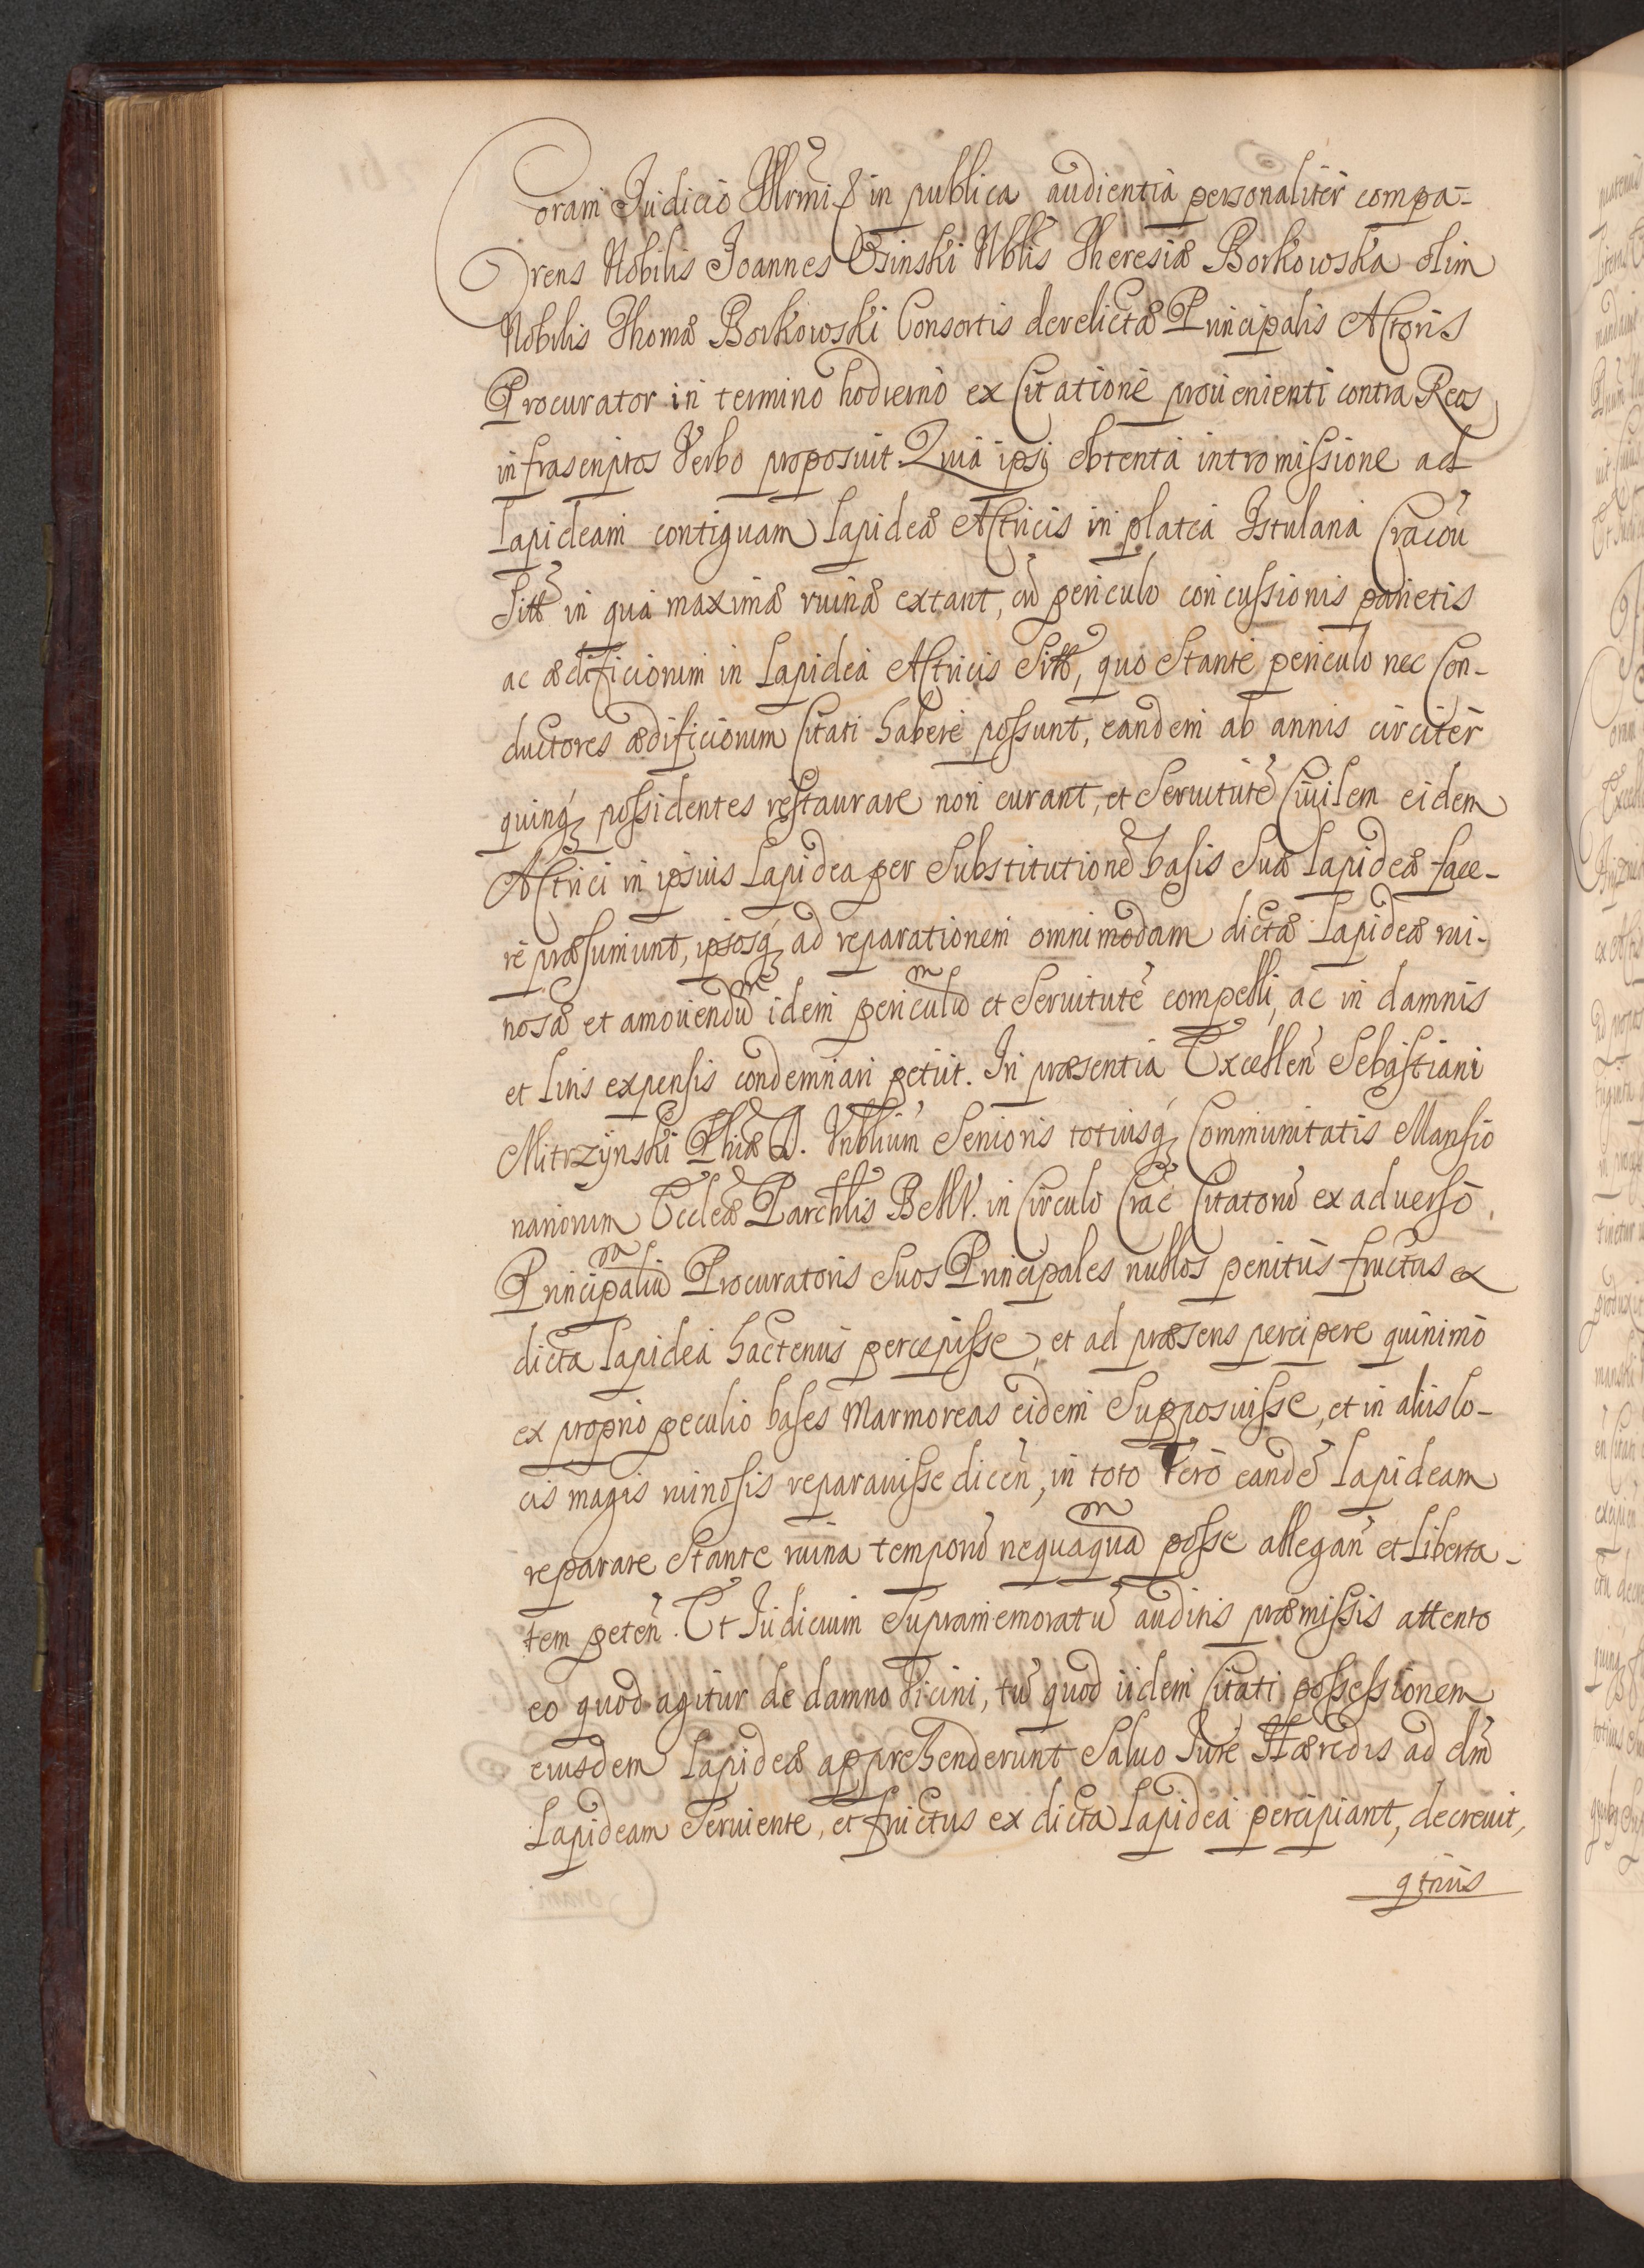 Coram Judicio Illrmi in publica audientia personaliter compa-
rens Nobilis Joannes Osinski Nblis Theresiæ Borkowska olim
Nobilis Thomæ Borkowski Consortis derelictæ Principalis Actoris
Procurator in termino hodierno ex Citatione prouenienti contra Reos
infrascriptos Verbo proposuit Quia ipsi obtenta intromissione ad
Lapideam contiguam Lapideæ Actricis in platea Istulana Cracou
in qua maximæ ruinæ extant, cū periculo concussionis parietis
ac ædificiorum in Lapidea Actricis quo Stante periculo nec Con-
ductores ædificiorum Citati habere possunt, eandem ab annis circiter
quinq possidentes restaurare non curant, et Seruitutē Ciuilem eidem
Actrici in ipsius Lapidea per Substitutionē basis Suæ Lapideæ face-
re præsumunt, ipsosq ad reparationem omnimodam dictæ Lapideæ rui-
nosæ et amouendū idem periculū et Seruitutē compelli, ac in damnis
et Litis expensis condemnari petiit. In præsentia Excellen Sebastiani
Mitrzynski Phiæ D. Vnblium Senioris totiusq Communitatis Mansio
nariorum Eccleæ Parchlis BMV. in Circulo Crac Citatorū ex aduerso
Principaliū Procuratoris Suos Principales nullos penitus fructus ex
dicta Lapidea hactenus percepisse, et ad præsens percipere quinimo
ex proprio peculio bases Marmoreas eidem Supposuisse, et in aliis lo-
cis magis ruinosis reparauisse dicen, in toto Vero eandē Lapideam
reparare Stante ruina temporū nequaquā posse allegan et Liberta-
tem peten. Et Judicium Supramemoratū auditis præmissis attento
eo quod agitur de damno Vicini, tū quod iidem Citati possessionem
eiusdem Lapideæ apprehenderunt Saluo Jure Hæredis ad dm
Lapideam Seruiente, et fructus ex dicta Lapidea percipiant, decreuit,